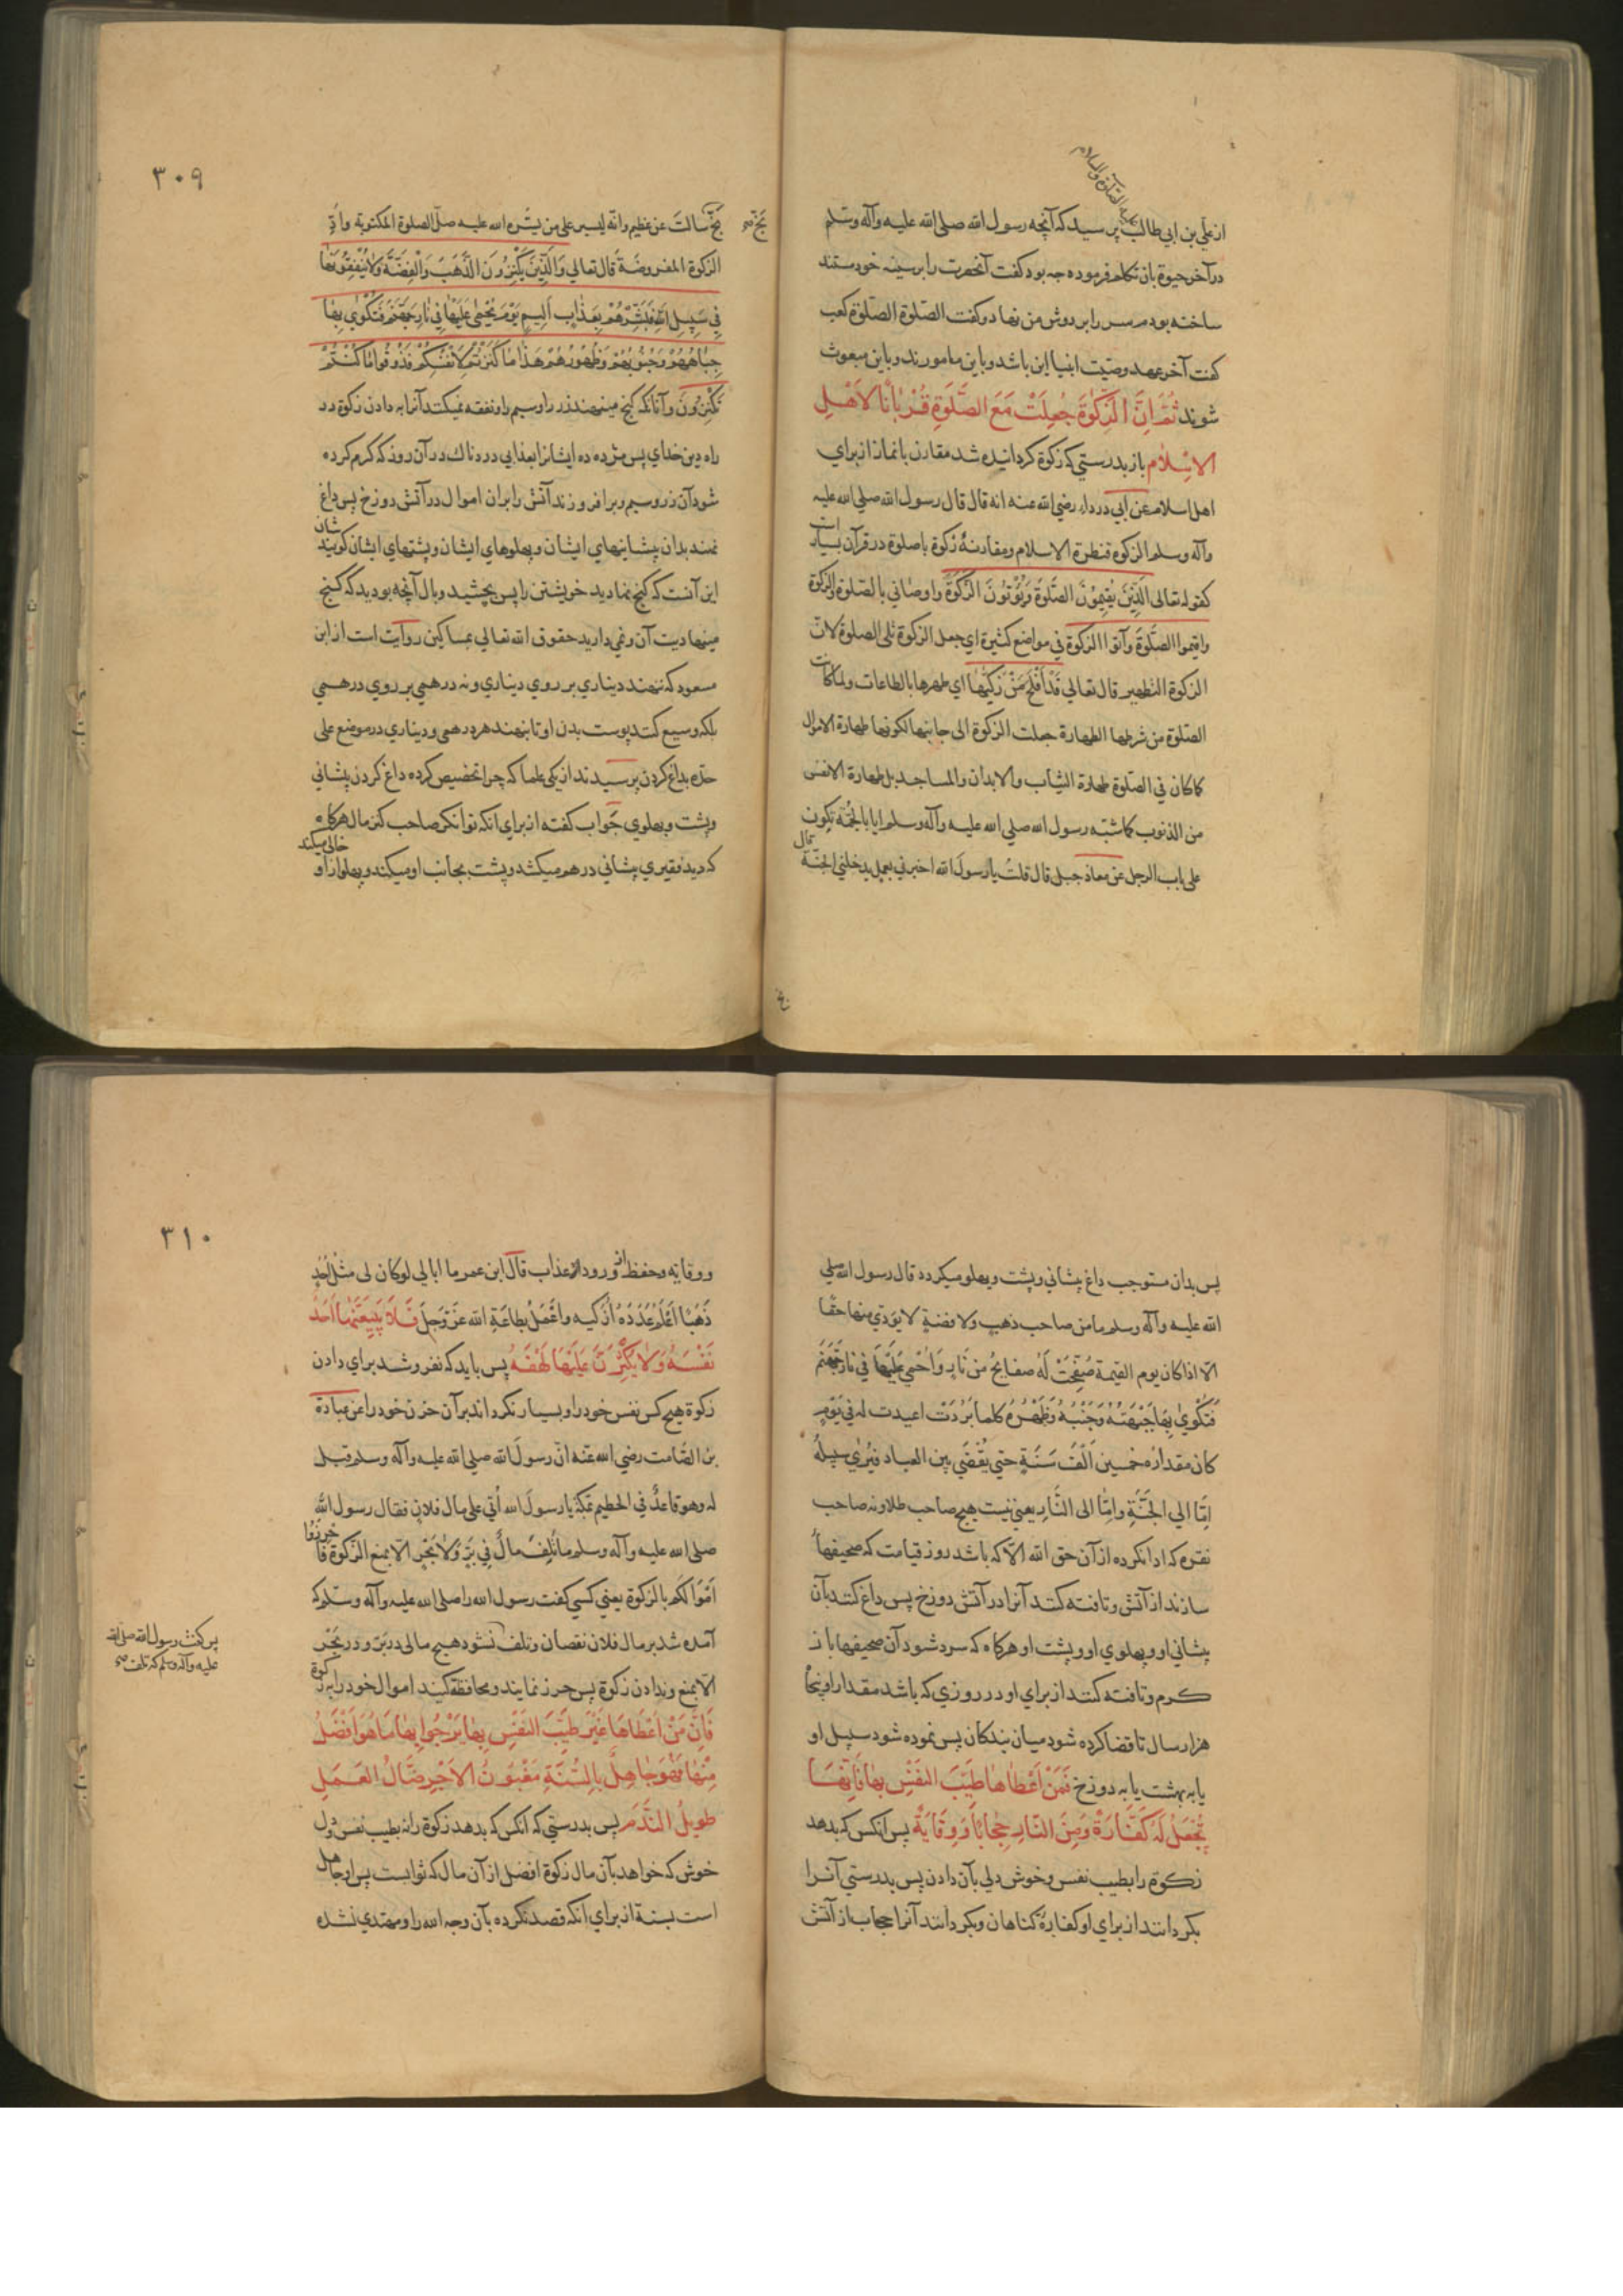 علیه الصلوة والسلام
از علي بن ابي طالب پرسید که آنچه رسول الله صلی الله علیه وآله وسلم
در آخر حیوة بان تکلم فرموده چه بود کفت آنحضرت را بر سینه خود ستند
ساخته بودم سر را بر دوش من نهاد و کفت الصلوة الصلوة کعب
کفت آخر عهد وصیّت انبیا این باشد و باین مامورند و باین مبعوث
شوند ثُمَّ اِنَّ الزَّکٰوةَ جُعِلَتْ مَعَ الصَّلٰوةِ قُرْبَانًا لاَهْلِ
الاِسْلاٰمِ باز بدرستي که زکوة کردانیده شد مقارن با نماز از براي
اهل اسلام عن ابي درداء رضي الله عنه انه قال قال رسول الله صلي الله علیه
وآله وسلم الزکوة قنطرة الاسلام ومقارنهٔ زکوة با صلوة در قرآن بسیار است
کقوله تعالی الَّذِیْنَ یُقِیْمُوْنَ الصَّلٰوةَ وَیُؤْتُوْنَ الزَّکٰوةَ واوصاني بالصلوة والزکوة
واقیموا الصَّلٰوةَ وآتوا الزکوة في مواضع کثیرة اي جعل الزکوة تلی الصلوة لان
الزکوة التطهیر قال تعالي قَدْ اَفْلَحَ مَنْ زَکّٰیهَا اي طهرها بالطاعات ولما کانت
الصّلوة من شرطها الطهارة جعلت الزکوة الی جانبها لکونها طهارة الاموال
کما کان في الصّلوة طهارة الثیاب والابدان والمساجد بل طهارة الانفس
من الذنوب کما شبّه رسول الله صلي الله علیه وآله وسلم ایاها بالحُمّة تکون
علی باب الرجل عن معاذ جبل قال قلتُ یا رسول الله اخبرني بعمل یدخلني الجنّة قال
۳۰۹
بَخّ صح
بَخّ سالتَ عن عظیم وانّه لیسیر علی من یسّره الله علیه صلّ الصلوة المکتوبة وادّ
الزکوة المفروضَةَ قال تعالي وَالَّذِیْنَ یَکْنِزُوْنَ الذَّهَبَ وَالْفِضَّةَ وَلاٰ یُنْفِقُوْنَهَا
فِي سَبِیْلِ اللهِ فَبَشِّرْهُمْ بِعَذَابٍ اَلِیْمٍ یَوْمَ یُحْمٰی عَلَیْهَا فِي نَارِ جَهَنَّمَ فَتُکْوٰي بِهَا
جِبَاهُهُمْ وَجُنُوْبُهُمْ وَظُهُوْرُهُمْ هَذَا مَا کَنَزْتُمْ لِاَنْفُسِکُمْ فَذُوْقُوا مَا کُنْتُمْ
تَکْنِزُوْنَ وآنانکه کنج مینهند زر را و سیم را و نفقه نمیکنند آنرا به دادن زکوة در
راه دین خداي پس مژده ده ایشانرا بعذابي دردناك در آن روز که کرم کرده
شود آن زر و سیم و بر افروزند آتش را بران اموال در آتش دوزخ پس داغ
نهند بدان پیشانیهاي ایشان و پهلوهاي ایشان و پشتهاي ایشان کویند شان
این آنست که کنج نهادید خویشتن را پس بچشید وبال آنچه بودید که کنج
مینهادیت آن و نمي دارید حقوق الله تعالي بمساکین روایت است از ابن
مسعود که ننهند دیناري بر روي دیناري و نه درهمي بر روي درهمي
بلکه وسیع کنند پوست بدن او تا بنهند هر درهمي و دیناري در موضع علی
حده بداغ کردن پرسیدند از یکی علما که چرا تخصیص کرده داغ کردن پیشاني
و پشت و پهلوي جواب کفته از براي انکه توانکر صاحب کنز مال هرکاه
که دید فقیري پیشاني درهم میکشد و پشت بجانب او میکند و پهلو از او خالی میکند
پس بدان مستوجب داغ پیشاني و پشت و پهلو میکردد قال رسول الله صلي
الله علیه وآله وسلم ما من صاحب ذهب ولا فضةٍ لا یؤدي منها حقّها
الّا اذا کان یوم القیمة صُفِّحَتْ لَهُ صفایحُ من نَارٍ وَاُحْمِي عَلَیْهَا في نارِ جَهَنَّم
فَتُکْوٰي بِهَا جَبْهَتُهُ وَجَنْبُهُ وَظَهْرُهُ کلما بَرُدَتْ اعیدت له في یَوْمٍ
کان مقداره خمسین اَلْفَ سَنَةٍ حتي یُقْضَي بین العباد فیُرٰي سبیلُهُ
اِمّا الي الجَنَّةِ واِمّا الی النَّار یعني نیست هیچ صاحب طلا و نه صاحب
نقره که ادا نکرده از آن حق الله الّا که باشد روز قیامت که صحیفها
سازند از آتش و تافته کنند آنرا در آتش دوزخ پس داغ کنند بآن
پیشاني او و پهلوي او و پشت او هرکاه که سرد شود آن صحیفها باز
کرم و تافته کنند از براي او در روزي که باشد مقدار او پنجاه
هزار سال تا قضا کرده شود میان بندکان پس نموده شود سبیل او
یا به بهشت یا به دوزخ فَمَنْ اَعْطَاهَا طَیِّبَ النَفْسِ بِهَا فَاِنَّهَا
تُجْعَلُ لَهُ کَفَّارَةً وَمِنَ النَّارِ حِجَابًا وَوِقَایَةً پس انکس که بدهد
زکوة را بطیب نفس و خوش دلي بآن دادن پس بدرستي آنرا
بکردانند از براي او کفارهٔ کناهان و بکردانند آنرا حجاب از آتش
۳۱۰
ووقایه وحفظ از ورود عذاب قال ابن عمر ما ابالي لو کان لی مثلُ اُحُدٍ
ذَهَبًا اَعْلَمُ عَدَدَهُ اُزَکّیه واَعْمَلُ بِطاعَةِ الله عَزَّ وَجَلَ فَلاٰ یُتْبِعَنَّهَا اَحَدٌ
نَفْسَهُ وَلاٰ یُکْثِرَنَّ عَلَیْهَا لَهْفَهُ پس باید که نفروشد براي دادن
زکوة هیچ کس نفس خود را و بسیار نکرداند بر آن حزن خود را عن عبادة
بن الصّامت رضي الله عنه انّ رسولَ الله صلي الله علیه وآله وسلم قیل
له وهو قاعدٌ في الحطیم بمکّة یا رسولَ الله اُتي علی مال فلانٍ فقال رسول الله
صلی الله علیه وآله وسلم ما تَلِفَ مالٌ فِي بَرٍّ وَلاٰ بَحْرٍ الّا بمنع الزّکٰوة فاحرزوا
اَمْوَالکم بالزکوة یعني کسي کفت رسول الله را صلي الله علیه وآله وسلم که
آمده شد بر مال فلان نقصان و تلف نشود هیچ مالی در بَرّ و در بَحْر
پس کفت رسول الله صلی الله علیه وآله وسلم که تلف صح
الّا بمنع و ندادن زکوة پس حرز نمایند و محافظه کنید اموال خود را بزکوة
فَاِنَّ مَنْ اَعْطَاهَا غَیْرَ طَیِّبِ النَفْسِ بِهَا یَرْجُوا بِهَا مَا هُوَ اَفْضَلُ
مِنْهَا فَهُوَ جَاهِلٌ بِالسُّنَّةِ مَغْبُوْنُ الاَجْرِ ضَالُّ العَمَلِ
طَوِیْلُ النَّدَمِ پس بدرستي که انکس که بدهد زکوة را نه بطیب نفس و دل
خوش که خواهد بآن مال زکوة افضل از آن مال که ثوابست پس او جاهل
است بسنة از براي انکه قصد نکرده بآن وجه الله را و مهتدي نشده